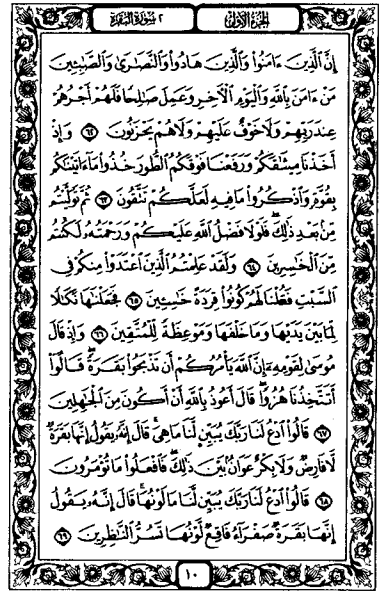 الجزء الأول ٢ سورة البقرة
إِنَّ ٱلَّذِينَ ءَامَنُوا۟ وَٱلَّذِينَ هَادُوا۟ وَٱلنَّصَٰرَىٰ وَٱلصَّٰبِـِٔينَ
مَنْ ءَامَنَ بِٱللَّهِ وَٱلْيَوْمِ ٱلْءَاخِرِ وَعَمِلَ صَٰلِحًا فَلَهُمْ أَجْرُهُمْ
عِندَ رَبِّهِمْ وَلَا خَوْفٌ عَلَيْهِمْ وَلَا هُمْ يَحْزَنُونَ ٦٢ وَإِذْ
أَخَذْنَا مِيثَٰقَكُمْ وَرَفَعْنَا فَوْقَكُمُ ٱلطُّورَ خُذُوا۟ مَآ ءَاتَيْنَٰكُم
بِقُوَّةٍ وَٱذْكُرُوا۟ مَا فِيهِ لَعَلَّكُمْ تَتَّقُونَ ٦٣ ثُمَّ تَوَلَّيْتُم
مِّنۢ بَعْدِ ذَٰلِكَ ۖ فَلَوْلَا فَضْلُ ٱللَّهِ عَلَيْكُمْ وَرَحْمَتُهُۥ لَكُنتُم
مِّنَ ٱلْخَٰسِرِينَ ٦٤ وَلَقَدْ عَلِمْتُمُ ٱلَّذِينَ ٱعْتَدَوْا۟ مِنكُمْ فِى
ٱلسَّبْتِ فَقُلْنَا لَهُمْ كُونُوا۟ قِرَدَةً خَٰسِـِٔينَ ٦٥ فَجَعَلْنَٰهَا نَكَٰلًا
لِّمَا بَيْنَ يَدَيْهَا وَمَا خَلْفَهَا وَمَوْعِظَةً لِّلْمُتَّقِينَ ٦٦ وَإِذْ قَالَ
مُوسَىٰ لِقَوْمِهِۦٓ إِنَّ ٱللَّهَ يَأْمُرُكُمْ أَن تَذْبَحُوا۟ بَقَرَةً ۖ قَالُوٓا۟
أَتَتَّخِذُنَا هُزُوًا ۖ قَالَ أَعُوذُ بِٱللَّهِ أَنْ أَكُونَ مِنَ ٱلْجَٰهِلِينَ
٦٧ قَالُوا۟ ٱدْعُ لَنَا رَبَّكَ يُبَيِّن لَّنَا مَا هِىَ ۚ قَالَ إِنَّهُۥ يَقُولُ إِنَّهَا بَقَرَةٌ
لَّا فَارِضٌ وَلَا بِكْرٌ عَوَانٌۢ بَيْنَ ذَٰلِكَ ۖ فَٱفْعَلُوا۟ مَا تُؤْمَرُونَ
٦٨ قَالُوا۟ ٱدْعُ لَنَا رَبَّكَ يُبَيِّن لَّنَا مَا لَوْنُهَا ۚ قَالَ إِنَّهُۥ يَقُولُ
إِنَّهَا بَقَرَةٌ صَفْرَآءُ فَاقِعٌ لَّوْنُهَا تَسُرُّ ٱلنَّٰظِرِينَ ٦٩
١٠